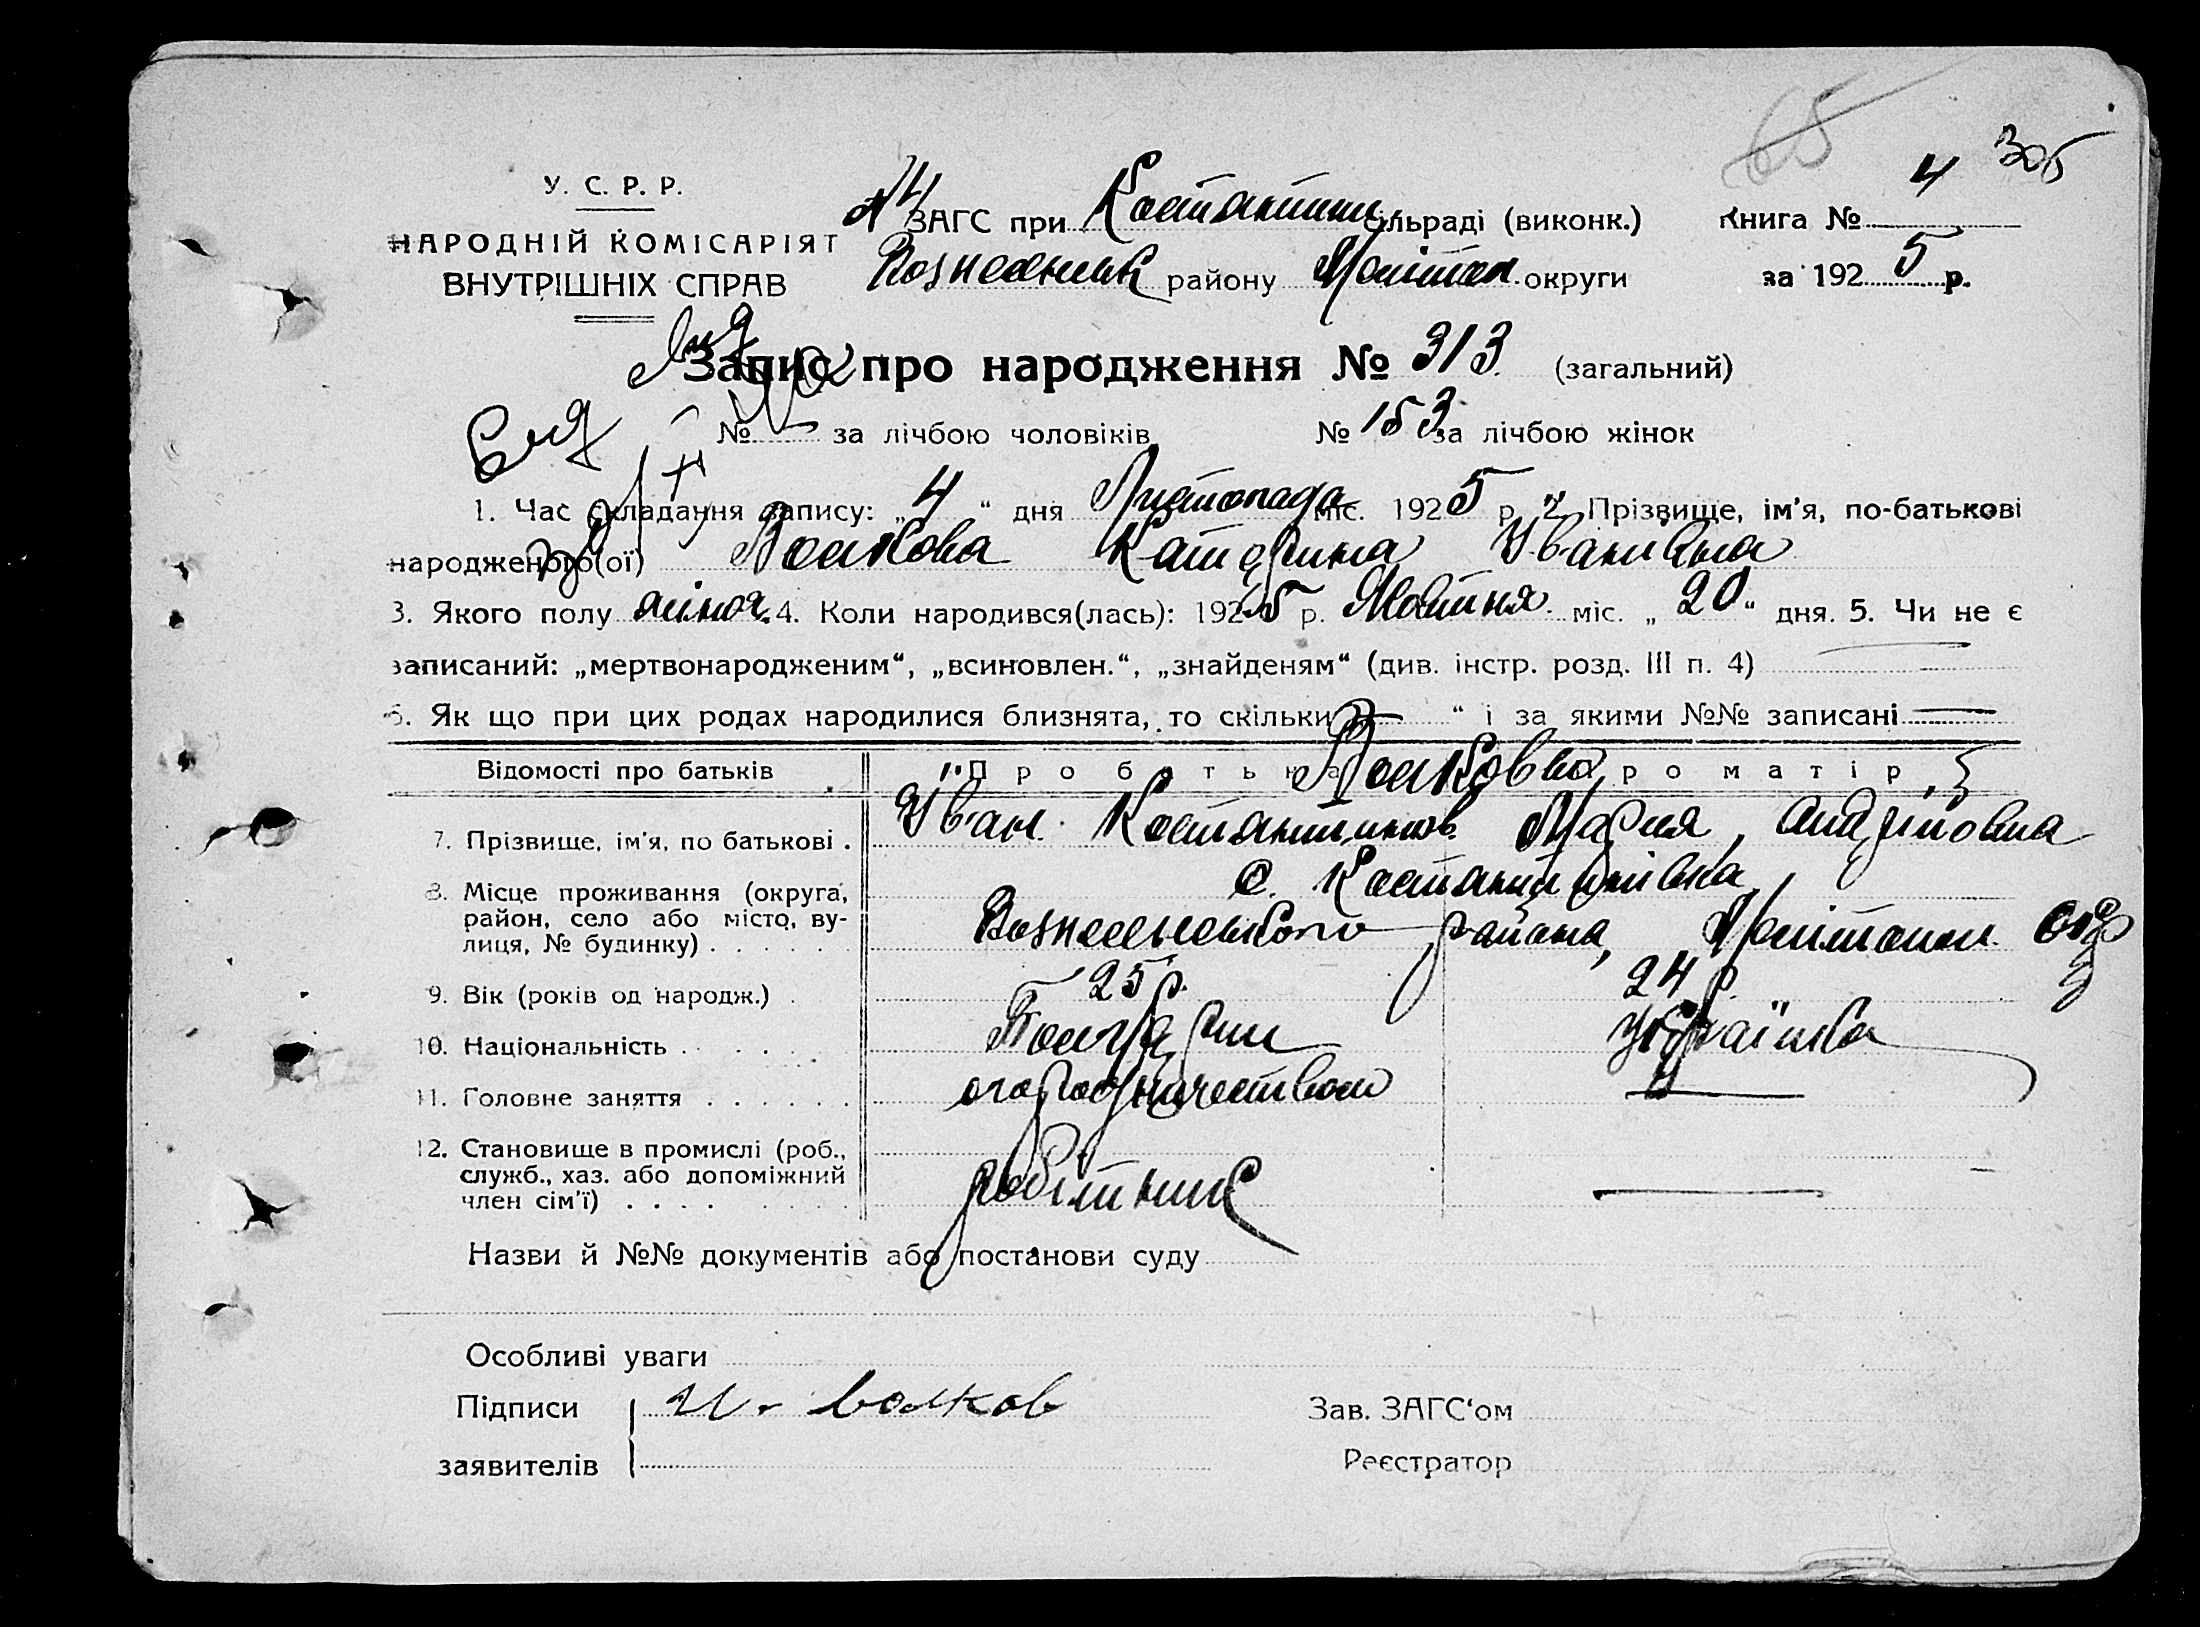 65
305
У. С. Р. Р.
НАРОДНІЙ КОМІСАРІЯТ
ВНУТРІШНІХ СПРАВ
ЗАГС при Костантин. сільраді (виконк.) Книга № 4
Вознесенськ району округи за 1925 р.
Запис про народження № 313 (загальний)
№ за лічбою чоловіків № 153 за лічбою жінок
1. Час складання запису: „4“ дня Листопада міс. 1925 р. 2. Прізвище, ім'я, по-батькові
народженого(ої) Волкова Катерина Іванівна
3. Якого полу жіноч. 4. Коли народився(лась): 1925 р. Жовтня міс. „20“ дня. 5. Чи не є
записаний: „мертвонародженим“, „всиновлен.“, „знайденям“ (див. інстр. розд. III п. 4) —
6. Як що при цих родах народилися близнята, то скільки „—“ і за якими №№ записані —
Відомості про батьків
Про батька
Про матір
Волкови
7. Прізвище, ім'я, по батькові .
Іван Костантинов.
Мария Андрійовна
8. Місце проживання (округа,
район, село або місто, ву-
лиця, № будинку) . . . . . .
с. Костянтинівка
Вознесенського района,
9. Вік (років од народж.) .
25 р.
24 р.
10. Національність . . . . . .
Болгарин
Українка
11. Головне заняття . . . . . .
огородничеством
—
12. Становище в промислі (роб.,
служб., хаз. або допоміжний
член сім'ї) . . . . . . . .
робітник
—
Назви й №№ документів або постанови суду
Особливі уваги
Підписи
заявителів
И. Волков
Зав. ЗАГС'ом
Реєстратор